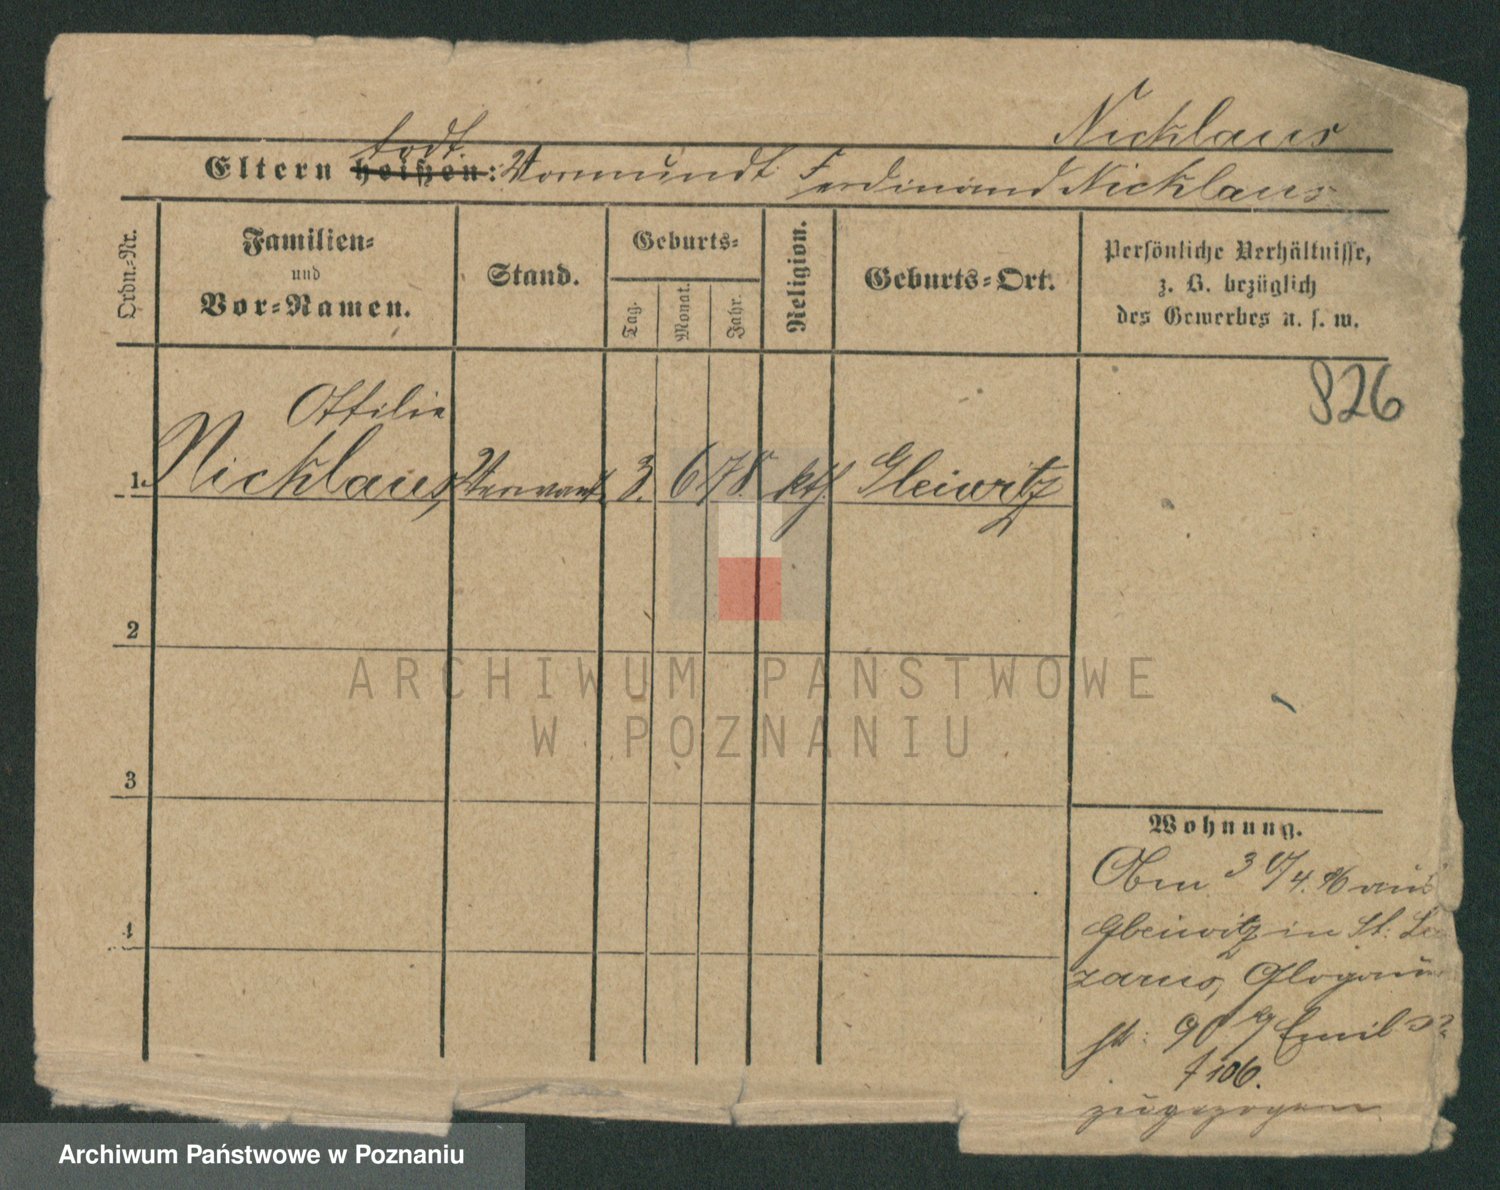 Nicklaus
todt.
Eltern heißen: Vormundt Ferdinand Nicklaus
Ordn.-Nr.
Familien-
und
Vor-Namen.
Stand.
Geburts-
Tag.
Monat.
Jahr.
Religion.
Geburts-Ort.
Persönliche Verhältnisse,
z. B. bezüglich
des Gewerbes u. s. w.
826
Ottilie
1. Nicklaus, 3. 6. 78. kth. Gleiwitz
2
3
4
Wohnung.
Gleiwitz in St. La
zarus, Glogau
st: 90 Emil
106.
zugezogen
ARCHIWUM PAŃSTWOWE
W POZNANIU
Archiwum Państwowe w Poznaniu